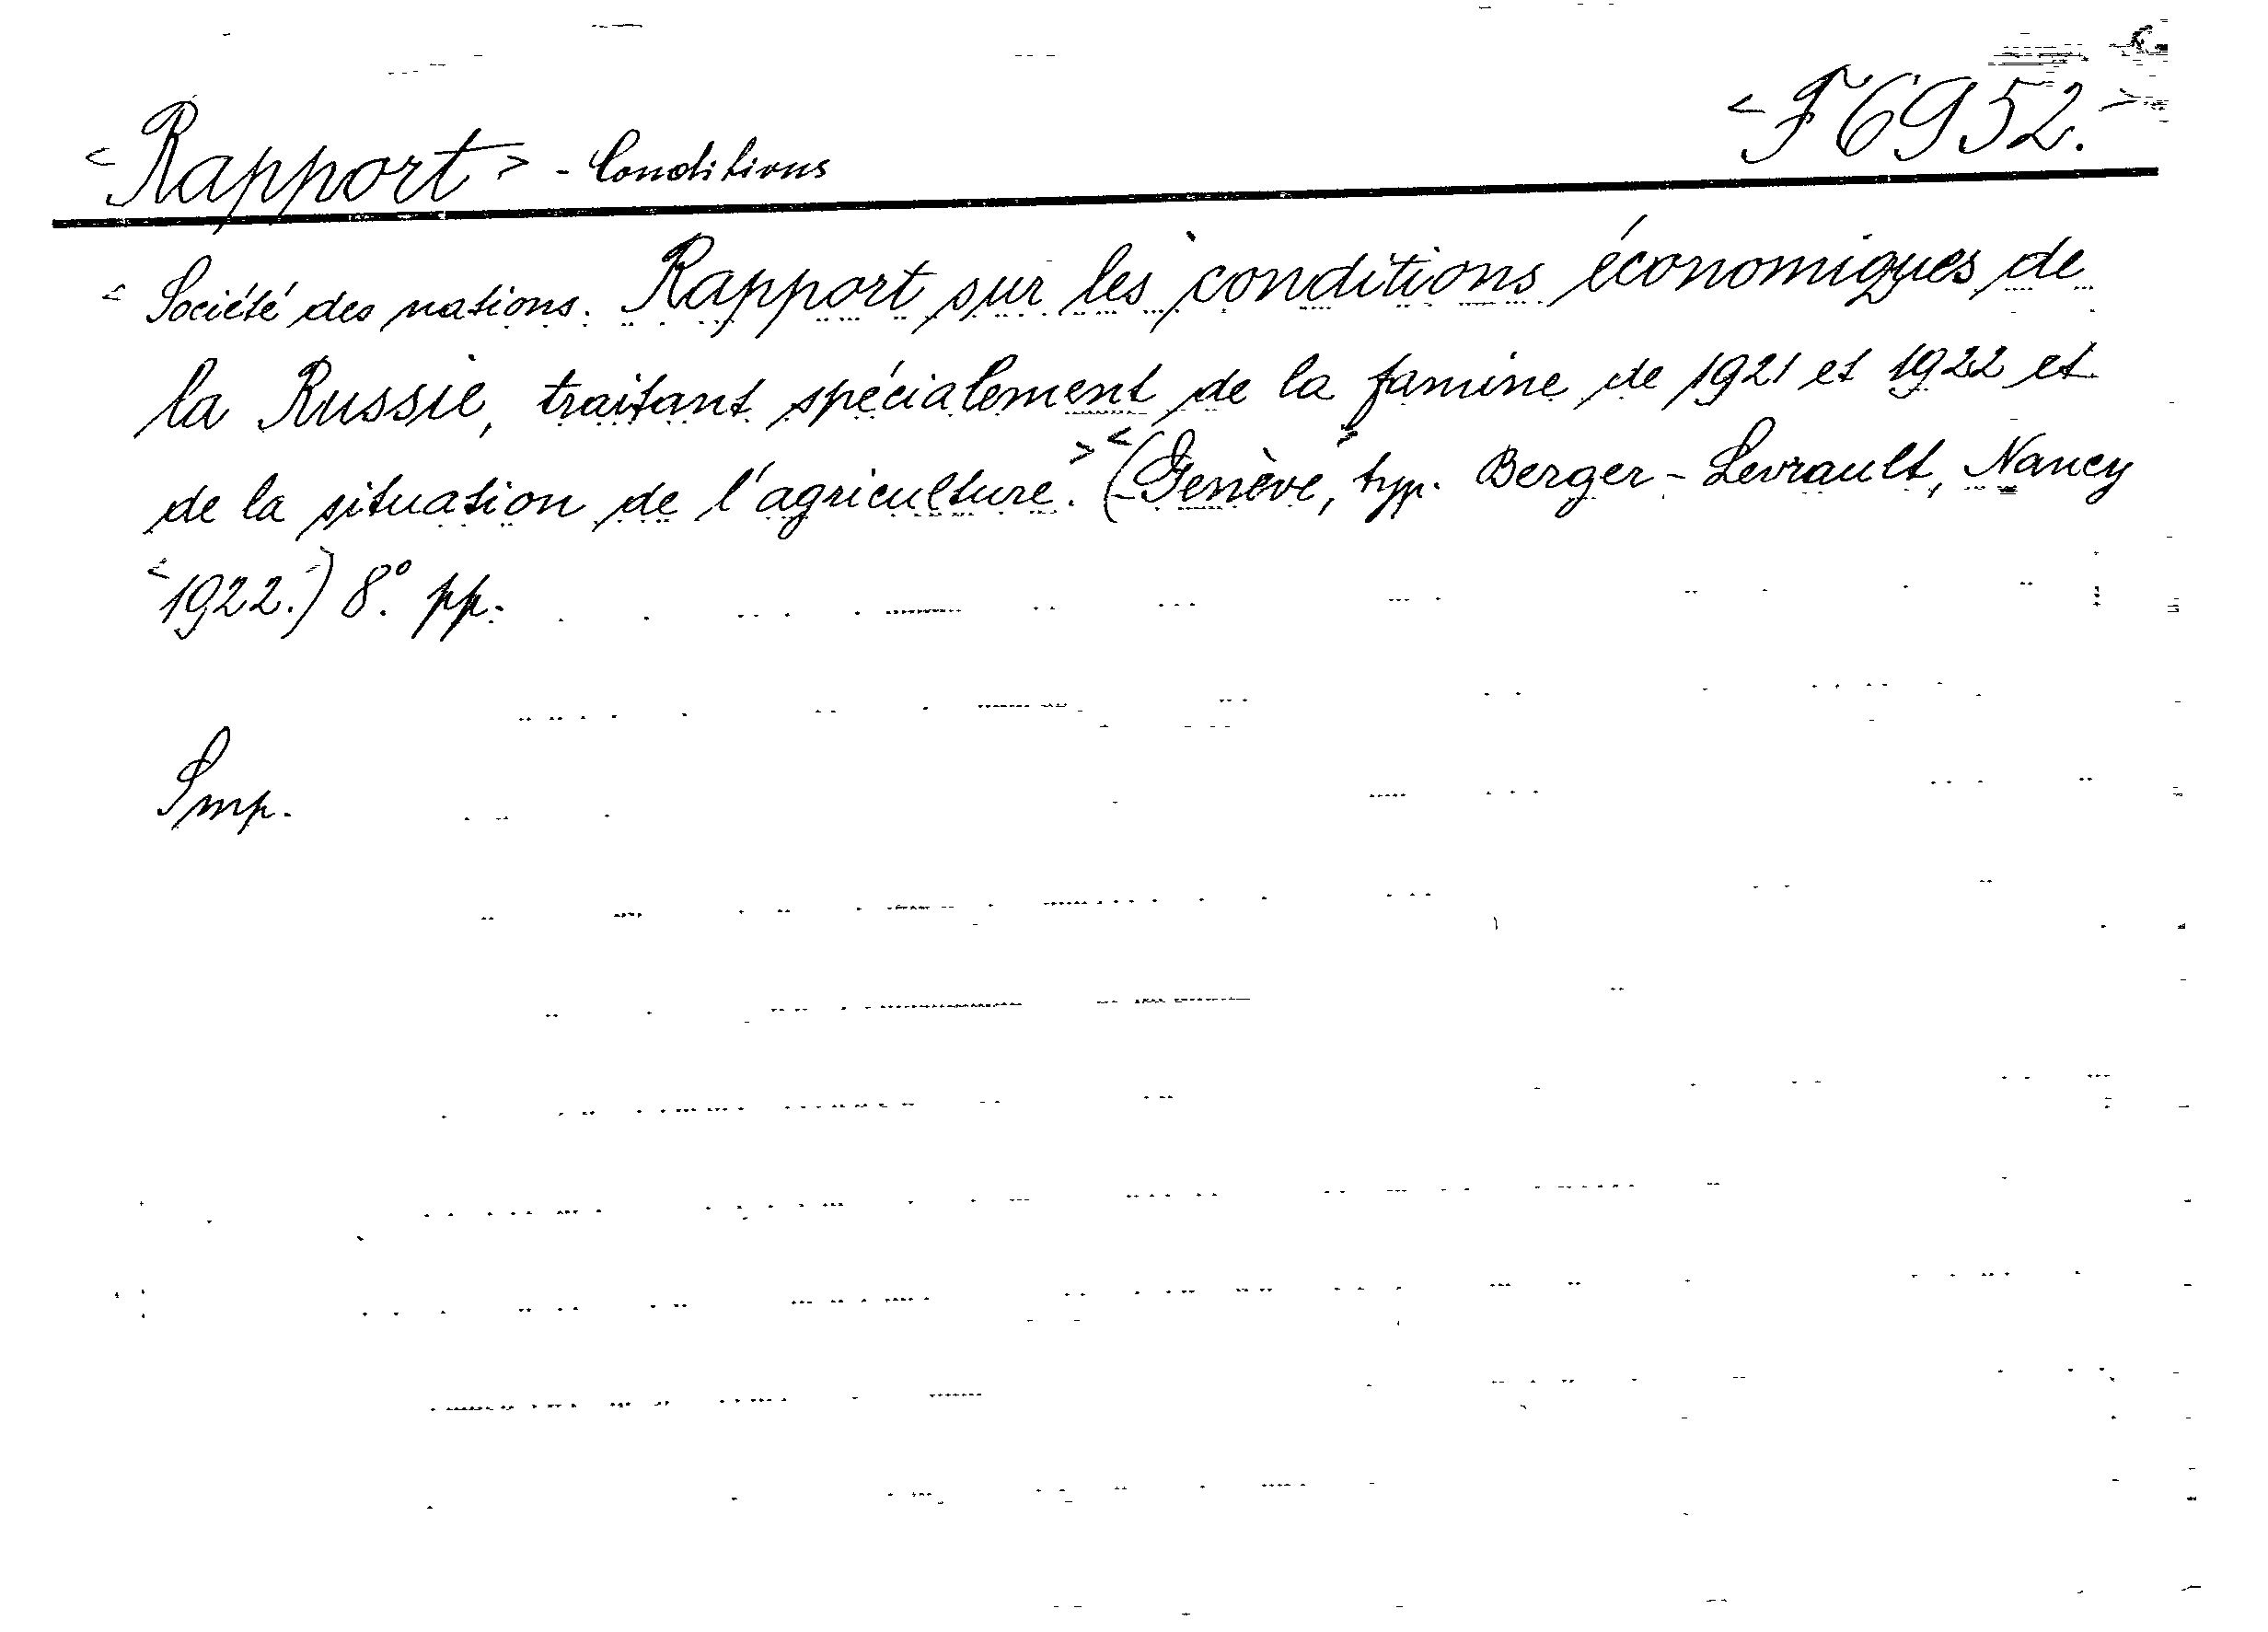 <Rapport> - Conditions <F 6952.>
< Société des nations. Rapport sur les conditions économiques de
la Russie, traitant spécialement de la famine de 1921 et 1922 et
de la situation de l'agriculture.> <(Genève,> typ. Berger-Levrault, Nancy
<1922.) 8°. pp.
Smp.